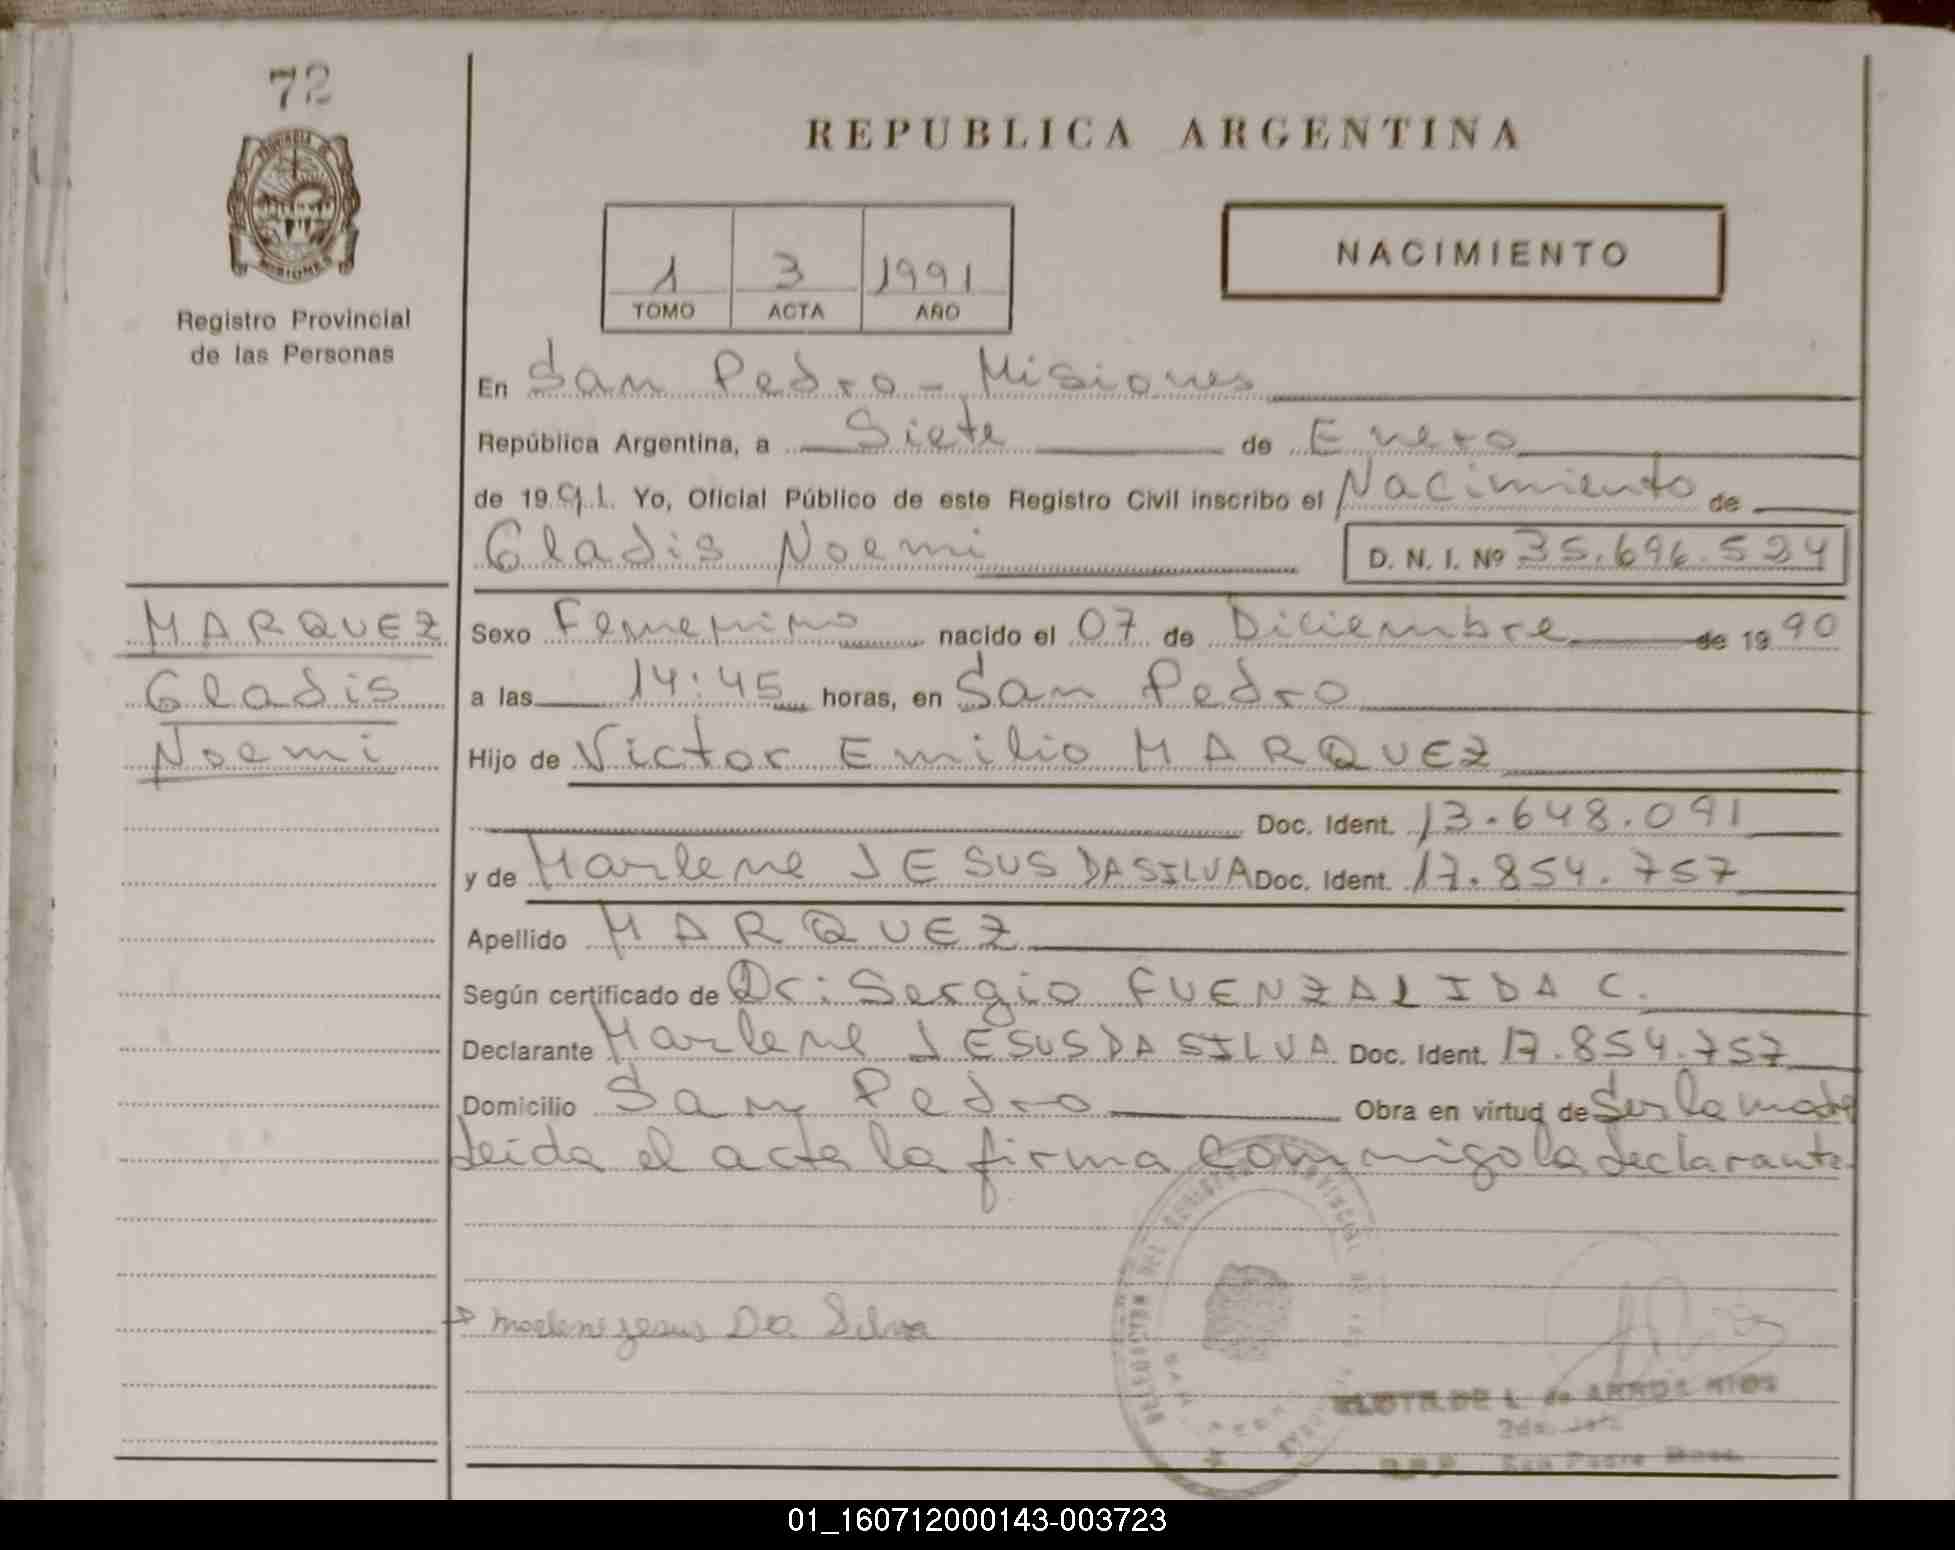 72
REPUBLICA ARGENTINA
PROVINCIA DE MISIONES
Registro Provincial
de las Personas
1 3 1991
TOMO ACTA AÑO
NACIMIENTO
En San Pedro - Misiones
República Argentina, a Siete de Enero
de 1991. Yo, Oficial Público de este Registro Civil inscribo el Nacimiento de
Gladis Noemi D. N. I. Nº 35.696.524
MARQUEZ
Gladis
Noemi
Sexo Femenino nacido el 07 de Diciembre de 1990
a las 14:45 horas, en San Pedro
Hijo de Victor Emilio MARQUEZ
Doc. Ident. 13.648.091
y de Marlene JESUS DA SILVA Doc. Ident. 17.854.757
Apellido MARQUEZ
Según certificado de Dr: Sergio FUENZALIDA C.
Declarante Marlene JESUS DA SILVA Doc. Ident. 17.854.757
Domicilio San Pedro Obra en virtud de Ser la madre
Leida el acta la firma conmigo la declarante.
Marlene Jesus Da Silva
de ARROS
2da. Jefe
R.P.P. San Pedro Mnes.
01_160712000143-003723